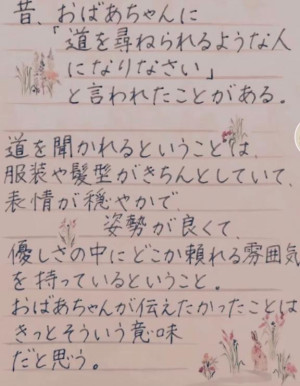 昔、おばあちゃんに
「道を尋ねられるような人
になりなさい」
と言われたことがある。
道を聞かれるということは、
服装や髪型がきちんとしていて、
表情が穏やかで、
姿勢が良くて、
優しさの中にどこか頼れる雰囲気
を持っているということ。
おばあちゃんが伝えたかったことは
きっとそういう意味
だと思う。